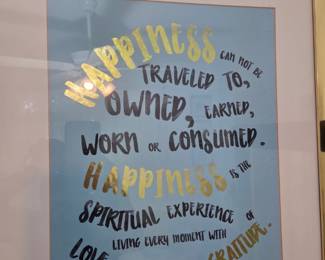 HAPPINESS CAN NOT BE
TRAVELED TO,
OWNED, EARNED,
WORN OR CONSUMED.
HAPPINESS IS THE
SPIRITUAL EXPERIENCE OF
LIVING EVERY MOMENT WITH
LOVE GRATITUDE.